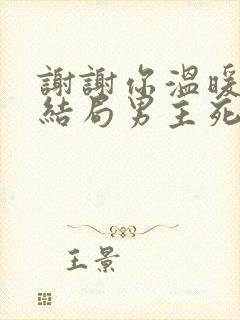 謝謝你溫暖
結局男主死
王景